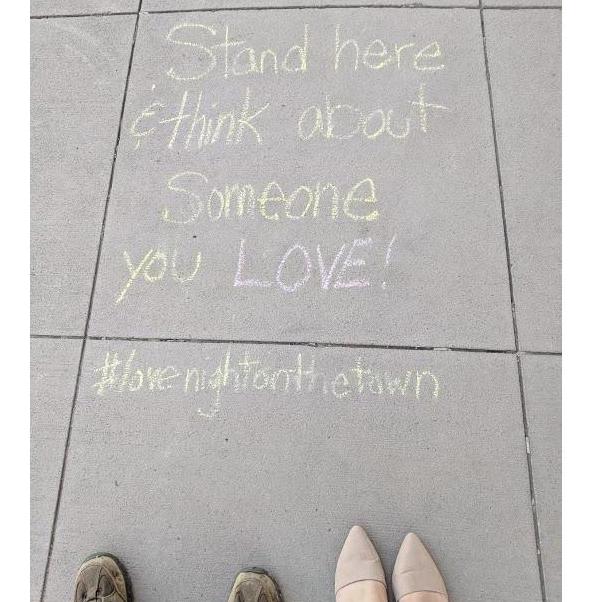 Stand here
& think about
Someone
you LOVE!
#lovenightonthetown